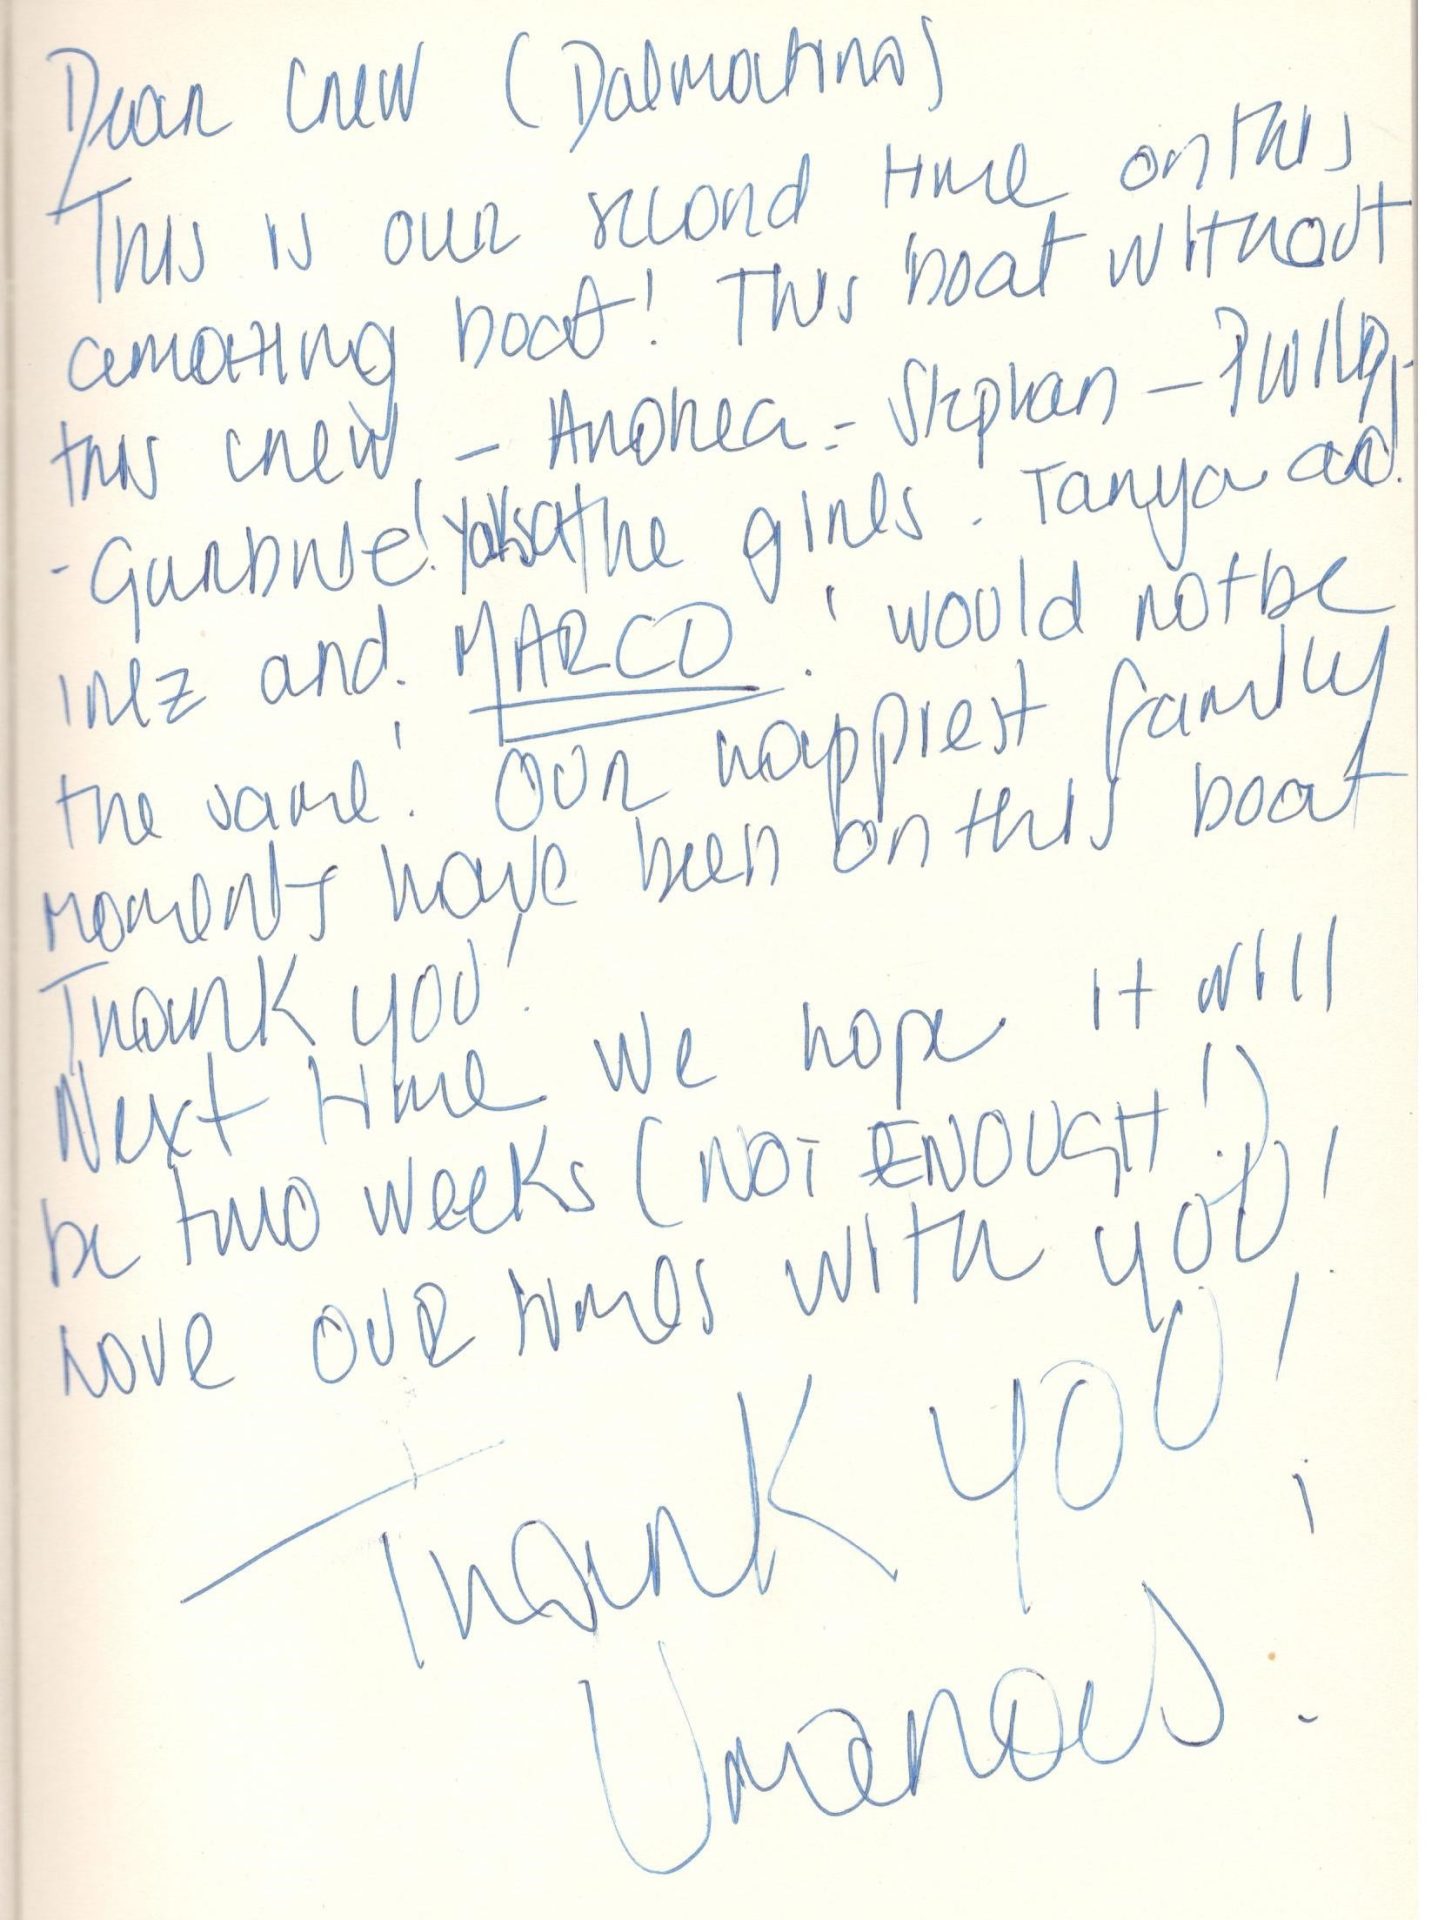 Dear Crew (Dalmatino)
This is our second time on this
amazing boat! This boat without
this crew - Andrea - Stephan -
- the girls. Tanya and
inez and MARCO! would not be
the same! Our happiest family
moments have been on this boat
Thank you!
Next time we hope it will
be two weeks (NOT ENOUGH!)
Love our times with you!
Thank you!